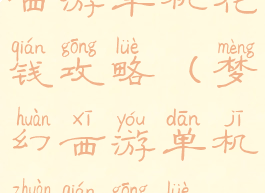 西游单机花
qián gōng lüè mèng
钱攻略（梦
huàn xī yóu dān jī
幻西游单机
zhuàn qián gōng lüè